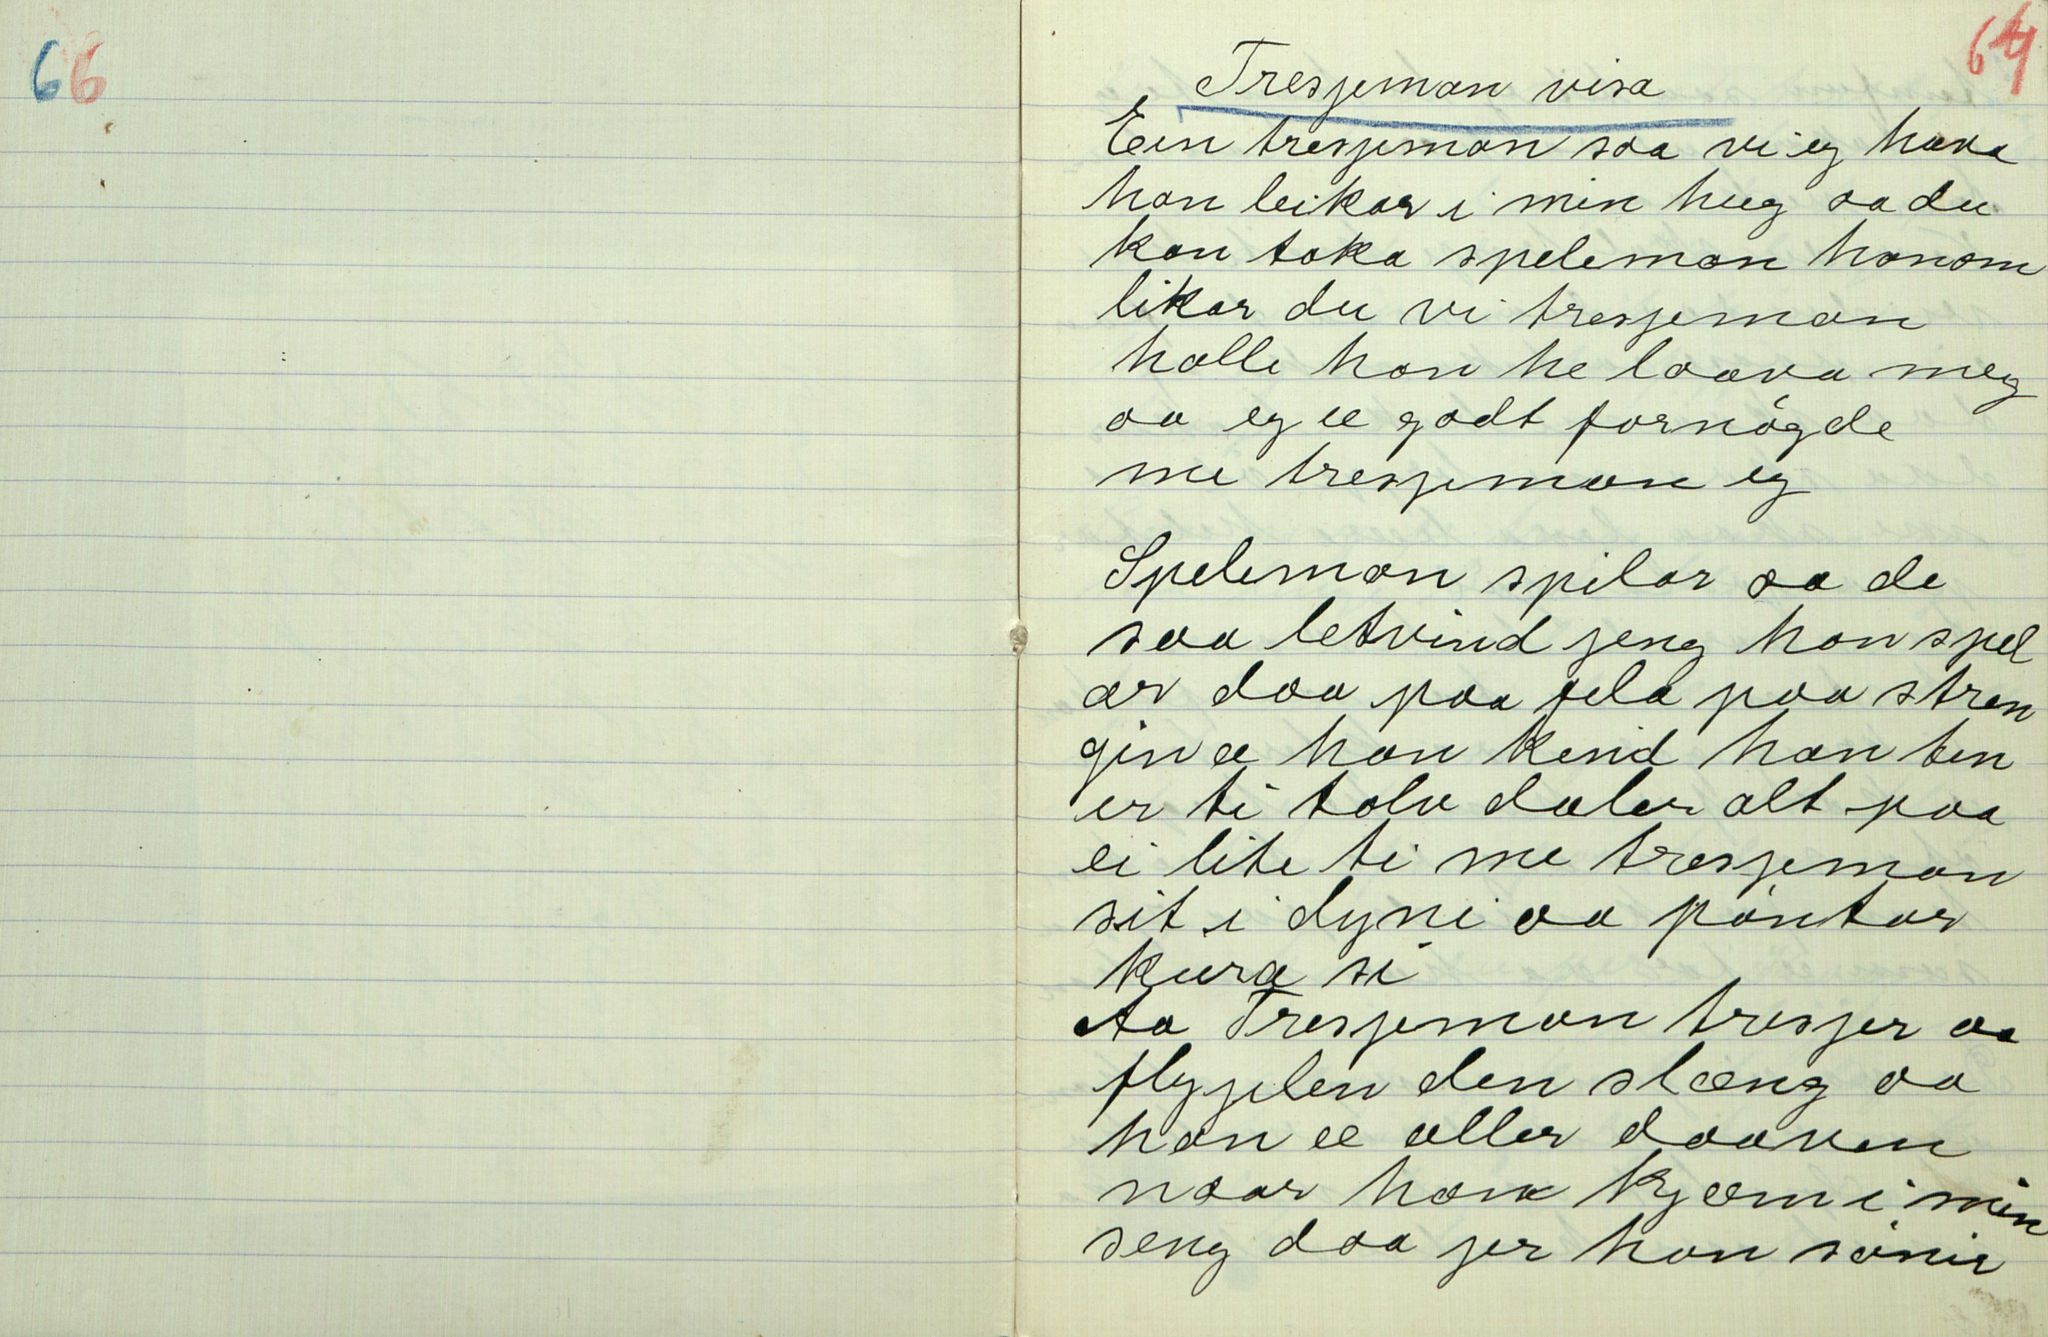 66
64
Tresjeman visa
Ein tresjeman saa vi eg hava
han leikar i min hug aa du
kan taka speleman honom
likar du vi tresjeman
halle han he laava meg
aa eg æ godt fornögde
me tresjeman eg
Speleman spilar aa de
saa letvind jeng han spel
ar daa paa fela paa stren
gin æ han kend han ten
er ti tolv daler alt paa
ei lite ti me tresjeman
sit i dyni aa pöntar
kura si
Aa Tresjeman tresjer aa
flygjelen den slæng aa
han æ aller daaven
naar han kjæm i min
seng daa jer han